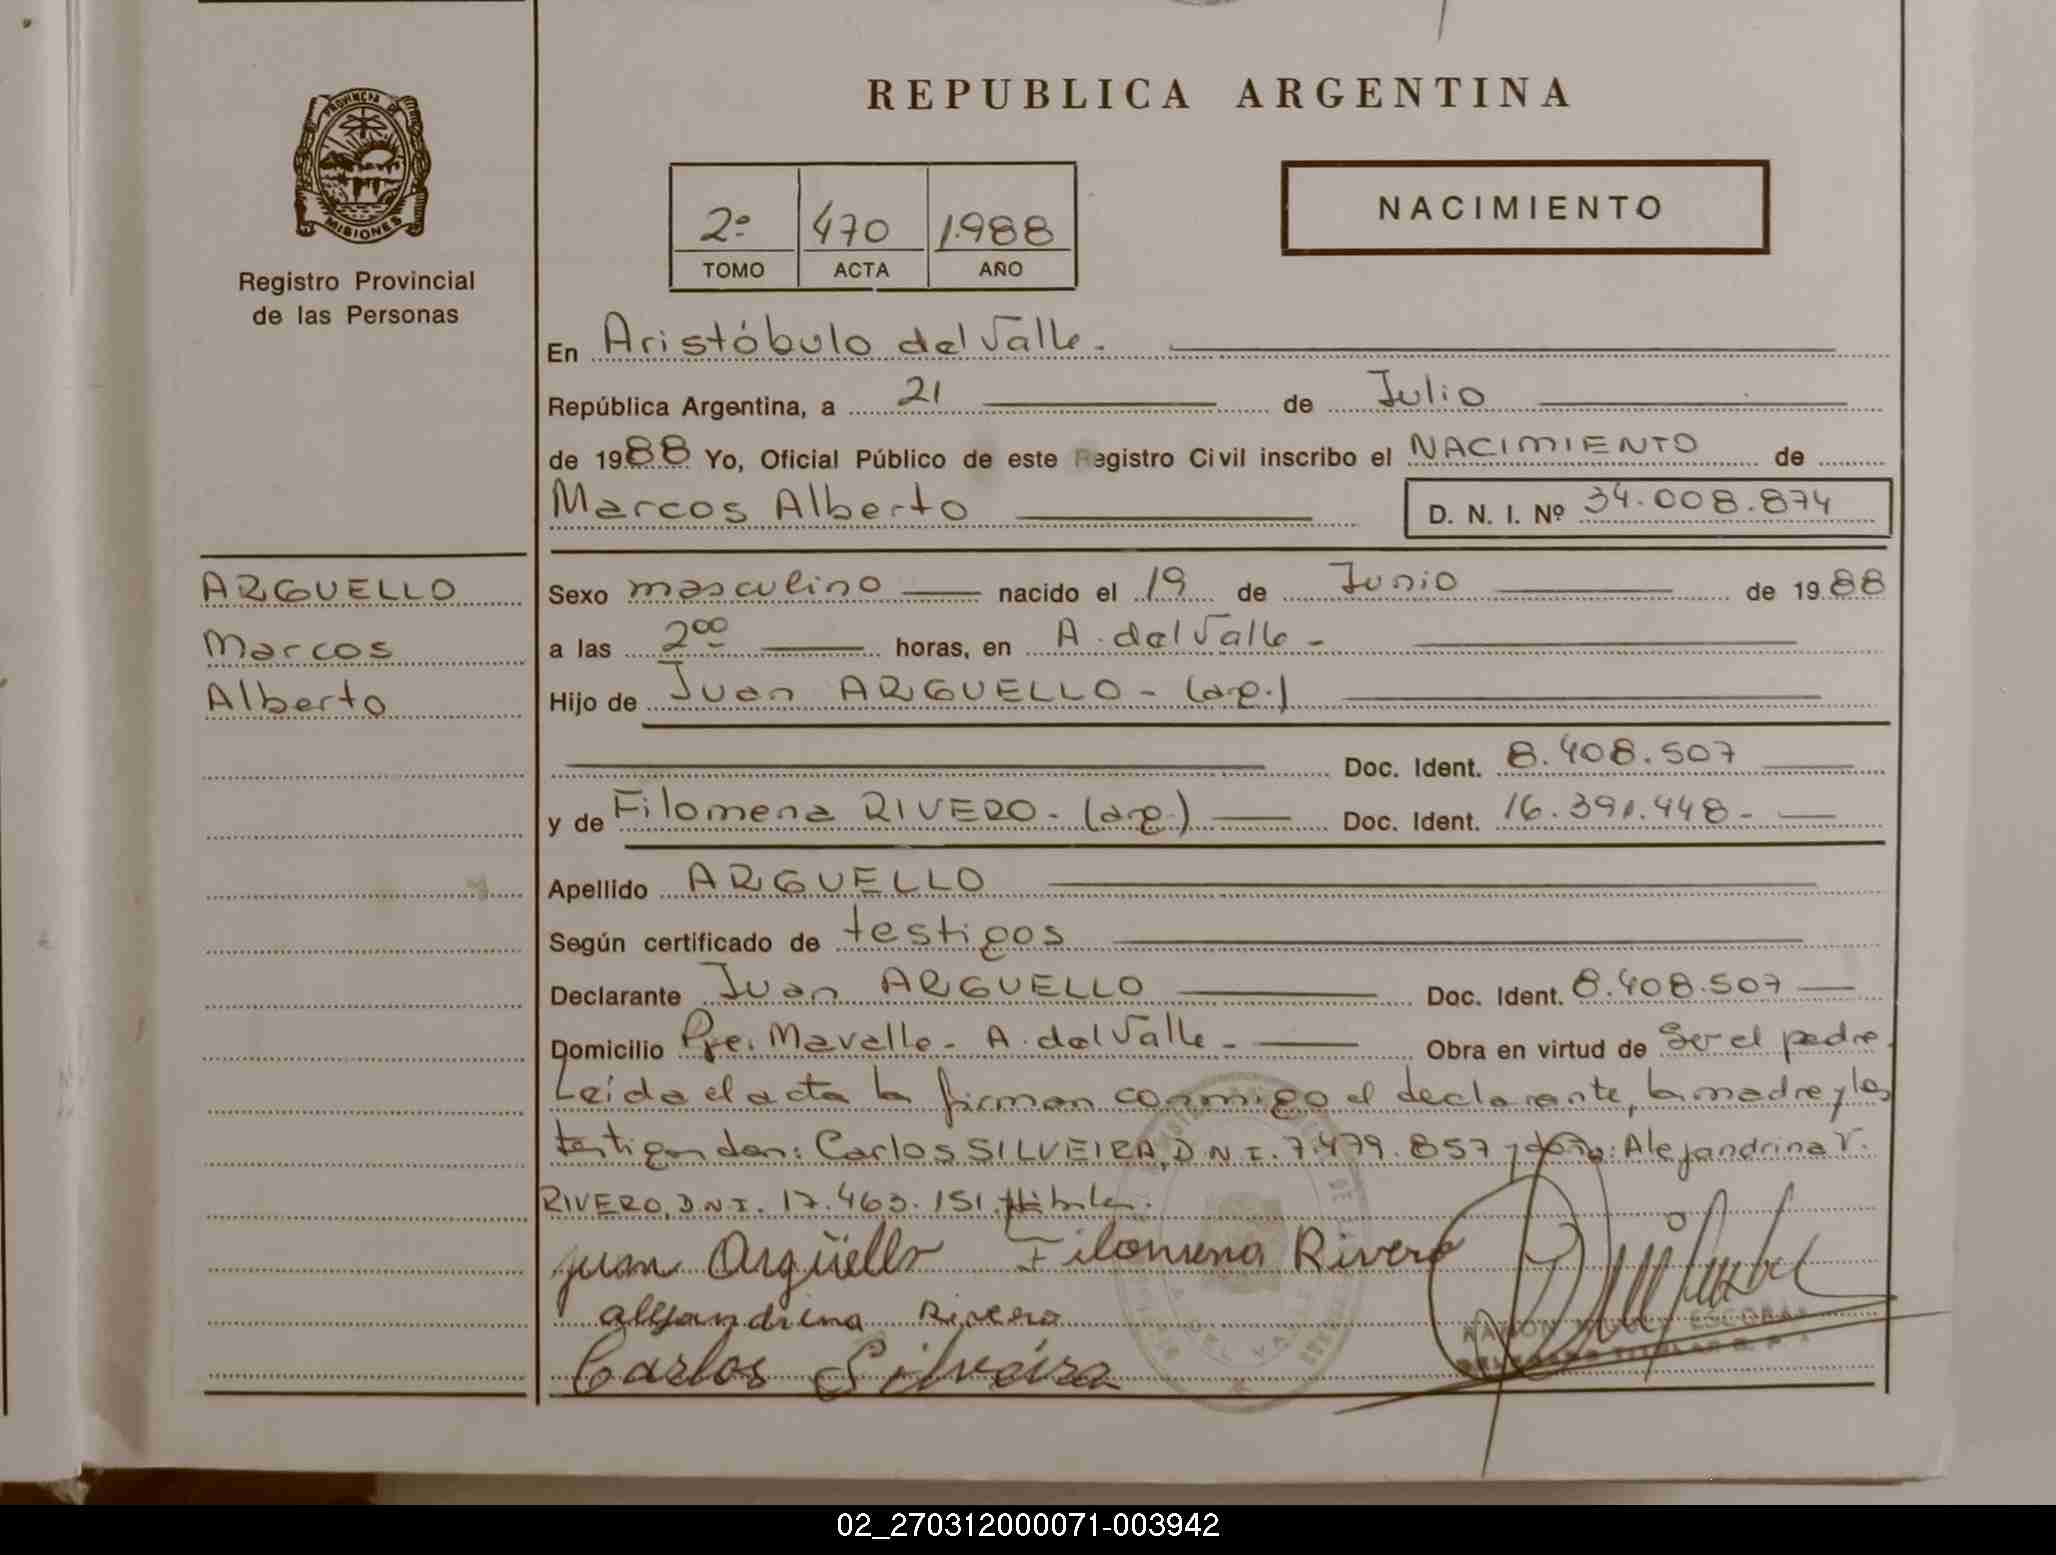 REPUBLICA ARGENTINA
PROVINCIA DE
MISIONES
Registro Provincial
de las Personas
2º 470 1.988
TOMO ACTA AÑO
NACIMIENTO
En Aristóbulo del Valle.
República Argentina, a 21 de Julio
de 1988 Yo, Oficial Público de este Registro Civil inscribo el NACIMIENTO de
Marcos Alberto D. N. I. Nº 34.008.874
ARGUELLO
Marcos
Alberto
Sexo masculino nacido el 19 de Junio de 1988
a las 2⁰⁰ horas, en A. del Valle -
Hijo de Juan ARGUELLO - (arg.)
Doc. Ident. 8.408.507
y de Filomena RIVERO - (arg.) Doc. Ident. 16.391.448 -
Apellido ARGUELLO
Según certificado de testigos
Declarante Juan ARGUELLO Doc. Ident. 8.408.507
Domicilio Pje. Mavalle - A. del Valle - Obra en virtud de Ser el padre.
Leída el acta la firman conmigo el declarante, la madre y los
testigos don: Carlos SILVEIRA, D.N.I. 7.479.857 y doña: Alejandrina V.
RIVERO, D.N.I. 17.463.151.
Juan Argüello Filomena Rivero
alejandrina Rivero
Carlos Silveira
02_270312000071-003942